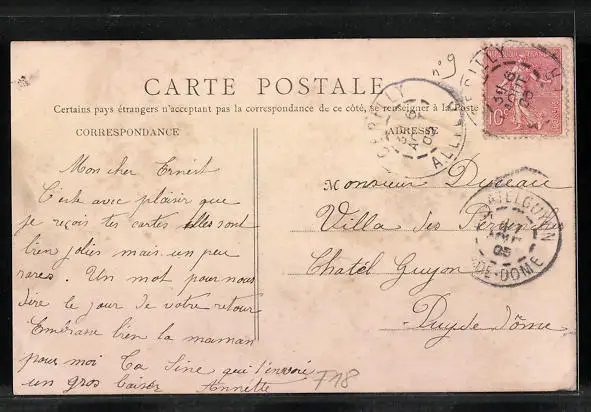 n°9
CARTE POSTALE
Certains pays étrangers n'acceptant pas la correspondance de ce côté, se renseigner à la Poste
CORRESPONDANCE
ADRESSE
Mon cher Ernest
C'est avec plaisir que
je reçois tes cartes elles sont
bien jolies mais un peu
rares. Un mot pour nous
dire le jour de votre retour
Embrasse bien la maman
pour moi Ta Sine qui t'envoie
un gros baiser Annette
718
Monsieur
Villa des
Chatel Guyon
Puy de Dôme
CERILLY
ALLIER
6
AOUT
05
CERILLY
6
AOUT
05
10
05
DE-DOME